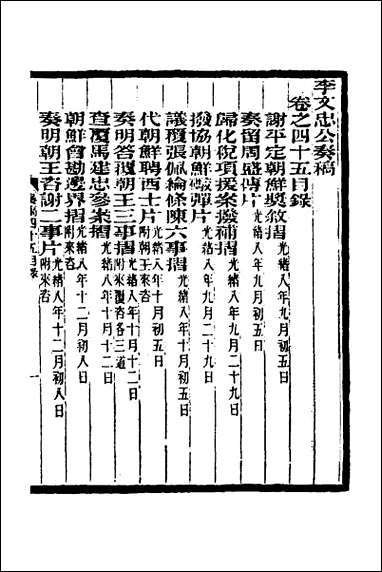 李文忠公奏稿
卷之四十五目錄
謝平定朝鮮獎敘摺 光緒八年九月初五日
奏留周盛傳片 光緒八年九月初五日
歸化稅項援案撥補摺 光緒八年九月二十九日
撥協朝鮮礮彈片 光緒八年九月二十九日
議覆張佩綸條陳六事摺 光緒八年十月初五日
代朝鮮聘西士片 附朝王來咨 光緒八年十月初五日
奏明答覆朝王三事摺 附來覆咨各三道 光緒八年十月十二日
查覆馬建忠參案摺 光緒八年十月十二日
朝鮮會勘邊界摺 附來咨 光緒八年十二月初八日
奏明朝王咨謝二事片 附來咨 光緒八年十二月初八日
奏稿四十五目錄
一